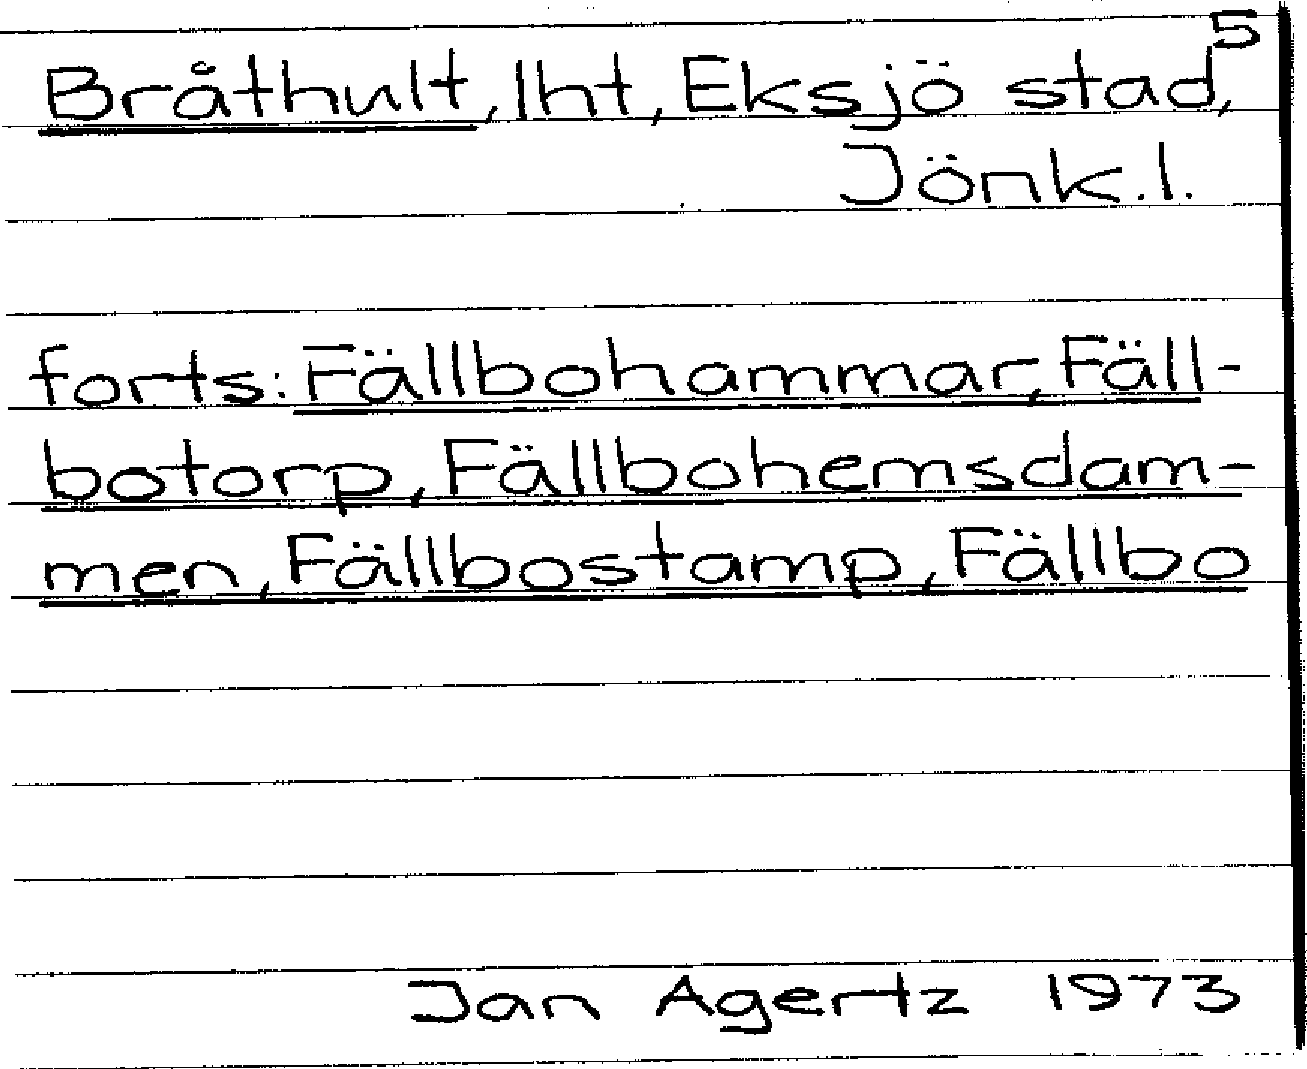 5
Bråthult, lht, Eksjö stad,
Jönk.l.
forts: Fällbohammar, Fäll-
botorp, Fällbohemsdam-
men, Fällbostamp, Fällbo
Jan Agertz 1973